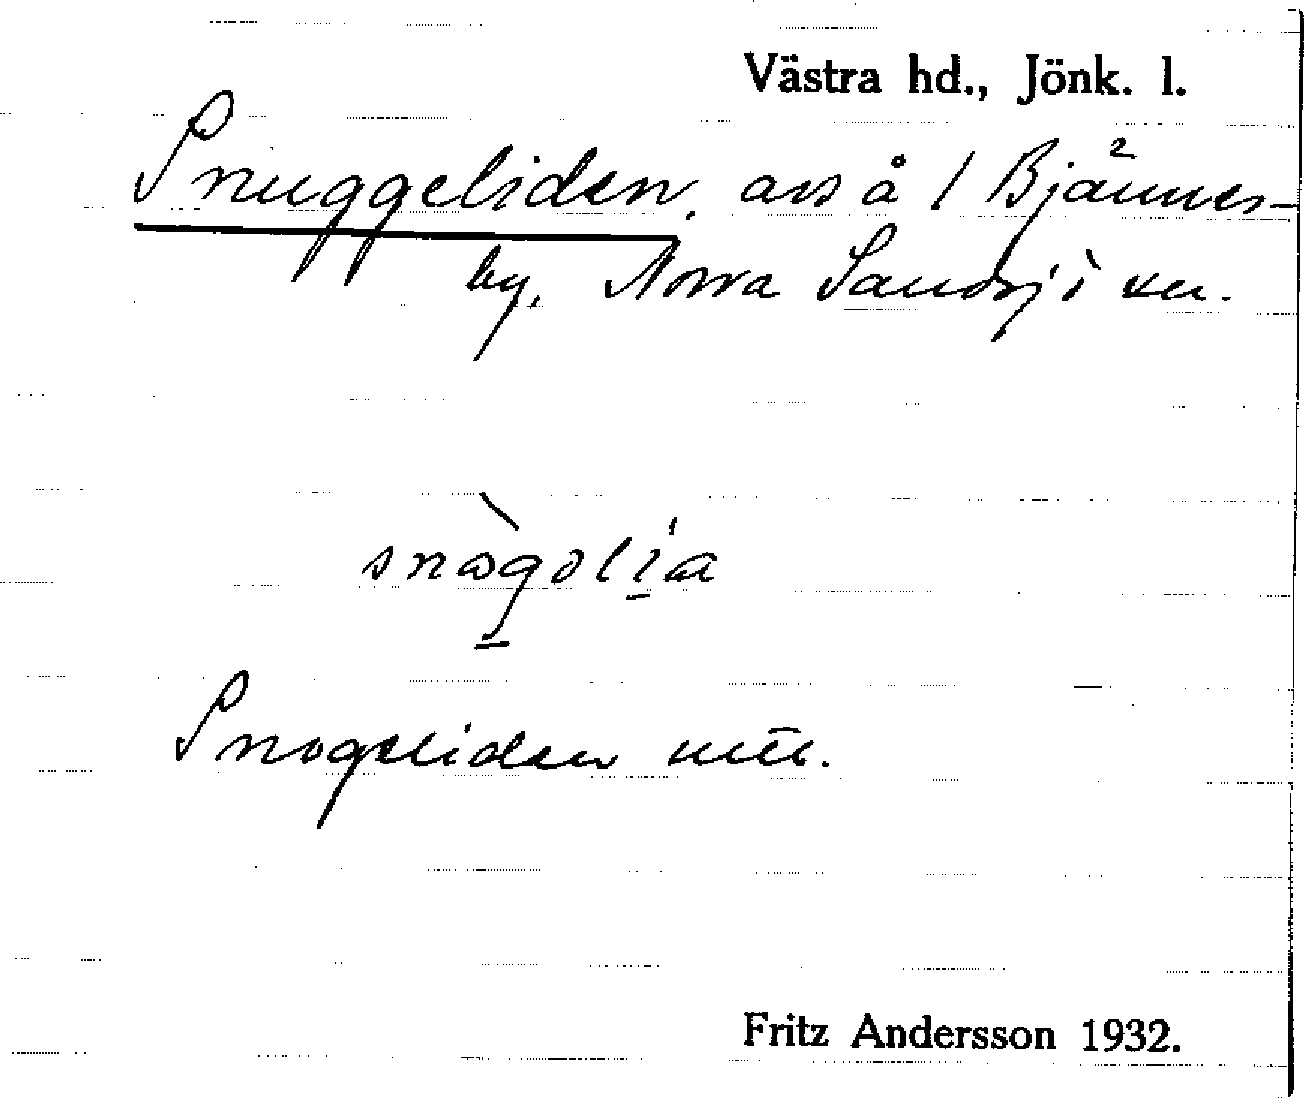 Västra hd., Jönk. l.
Snuggeliden, avs å 1 Bjärnes-
by, Norra Sandsjö sn.
Snogeliden
Fritz Andersson 1932.